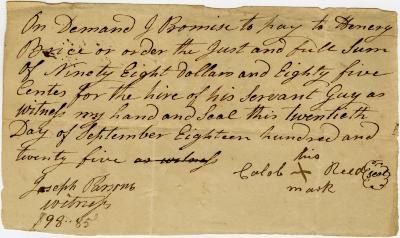 On Demand I Promise to pay to Henery
Brice or order the Just and full Sum
of Ninety Eight Dollars and Eighty five
Centes for the hire of his Servant Guy as
witness my hand and seal this twentieth
Day of September Eighteen hundred and
twenty five as witness
his
Caleb X Reed seal
mark
Joseph Parsons
witness
$98..85